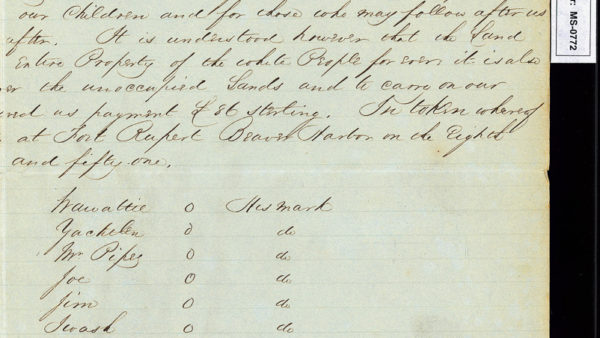 our Children and for those who may follow after us
after. It is understood however that the Land
Entire Property of the white People for ever it is also
er the unoccupied Lands and to carry on our
nd as payment £86 sterling. In token whereof
at Fort Rupert Beaver Harbor on the Eighth
and fifty one.
Wawattie O His mark
Yachelen O do
Mr Pipes O do
Joe O do
Jim O do
Siwash O do
: MS-0772